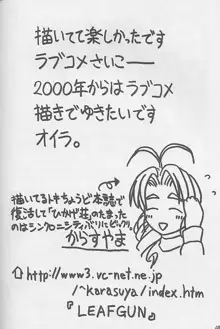 描いてて楽しかったです
ラブコメさいこー
2000年からはラブコメ
描きでゆきたいです
オイラ。
描いてるトキちょうど本誌で
復活して「ひかげ荘」のたまった
のはシンクロニシティバリにビックリ。
からすやま
⇧http://www3.vc-net.ne.jp
/~karasuya/index.htm
『LEAFGUN』